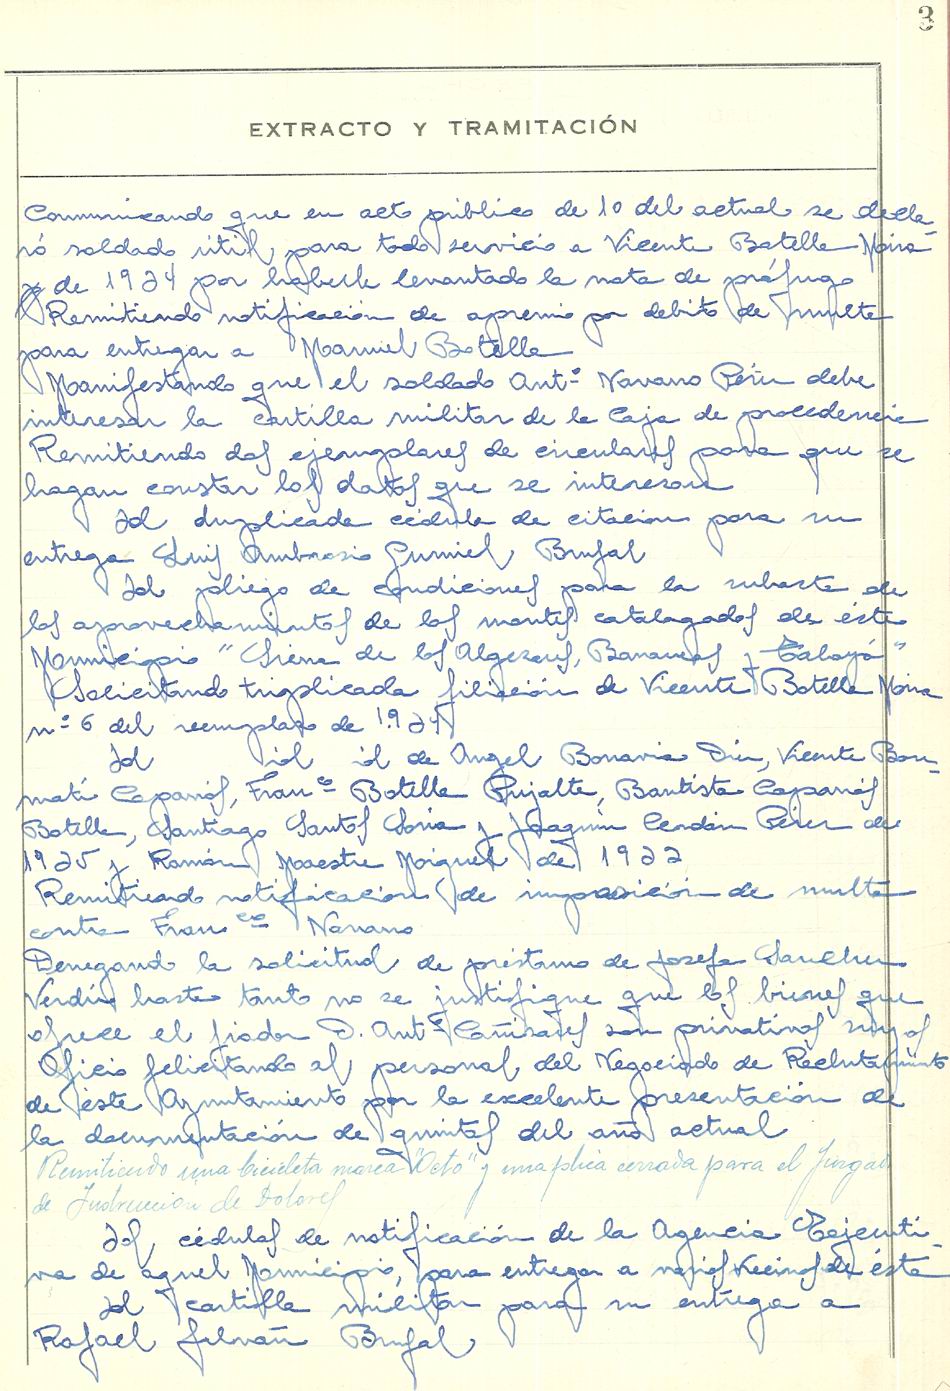 3
EXTRACTO Y TRAMITACIÓN
Communicando que en acto público de 10 del actual se decla-
ró soldado útil para todo servicio a Vicente Botella Moira
de 1924 por haberle levantado la nota de prófugo
Remitiendo notificación de apremio por debito de multa
para entregar a Manuel Botella
Manifestando que el soldado Antº Navarro Pérez debe
interesar la cartilla militar de la Caja de procedencia
Remitiendo dos ejemplares de circulares para que se
hagan constar los datos que se interesan
Id duplicada cédula de citacion para su
entrega Luis Ambrosio Gumiel Brufal
Id pliego de condiciones para la subasta de
los aprovechamientos de los montes catalagados de éste
Municipio "Sierra de los Algezares, y Talayó"
Solicitando triplicada filiación de Vicente Botella Moira
nº 6 del reemplazo de 1924
Id id id de Angel Bonavia Diez, Vicente Bon-
matí Caparrós, Franco Botella Pujalte, Bautista Caparrós
Botella, Santiago Santos Soria y Joaquín Cerdán Pérez de
1925 y Ramón Maestre de 1922
Remitiendo notificacion de imposición de multa
contra Franco Navarro
Denegando la solicitud de préstamo de Josefa Sanchez
Verdú hasta tanto no se justifique que los bienes que
ofrece el fiador D. Antº Cañizares son privativos suyos
Oficio felicitando al personal del Negociado de Reclutamiento
de éste Ayuntamiento por la excelente presentación de
la documentación de quintas del año actual
Remitiendo una bicicleta marca "Octo" y una plica cerrada para el Juzgado
de Instruccion de Dolores
Id cédulas de notificación de la Agencia Ejecuti-
va de aquel Municipio, para entregar a varios vecinos de ésta
Id cartilla militar para su entrega a
Rafael Brufal